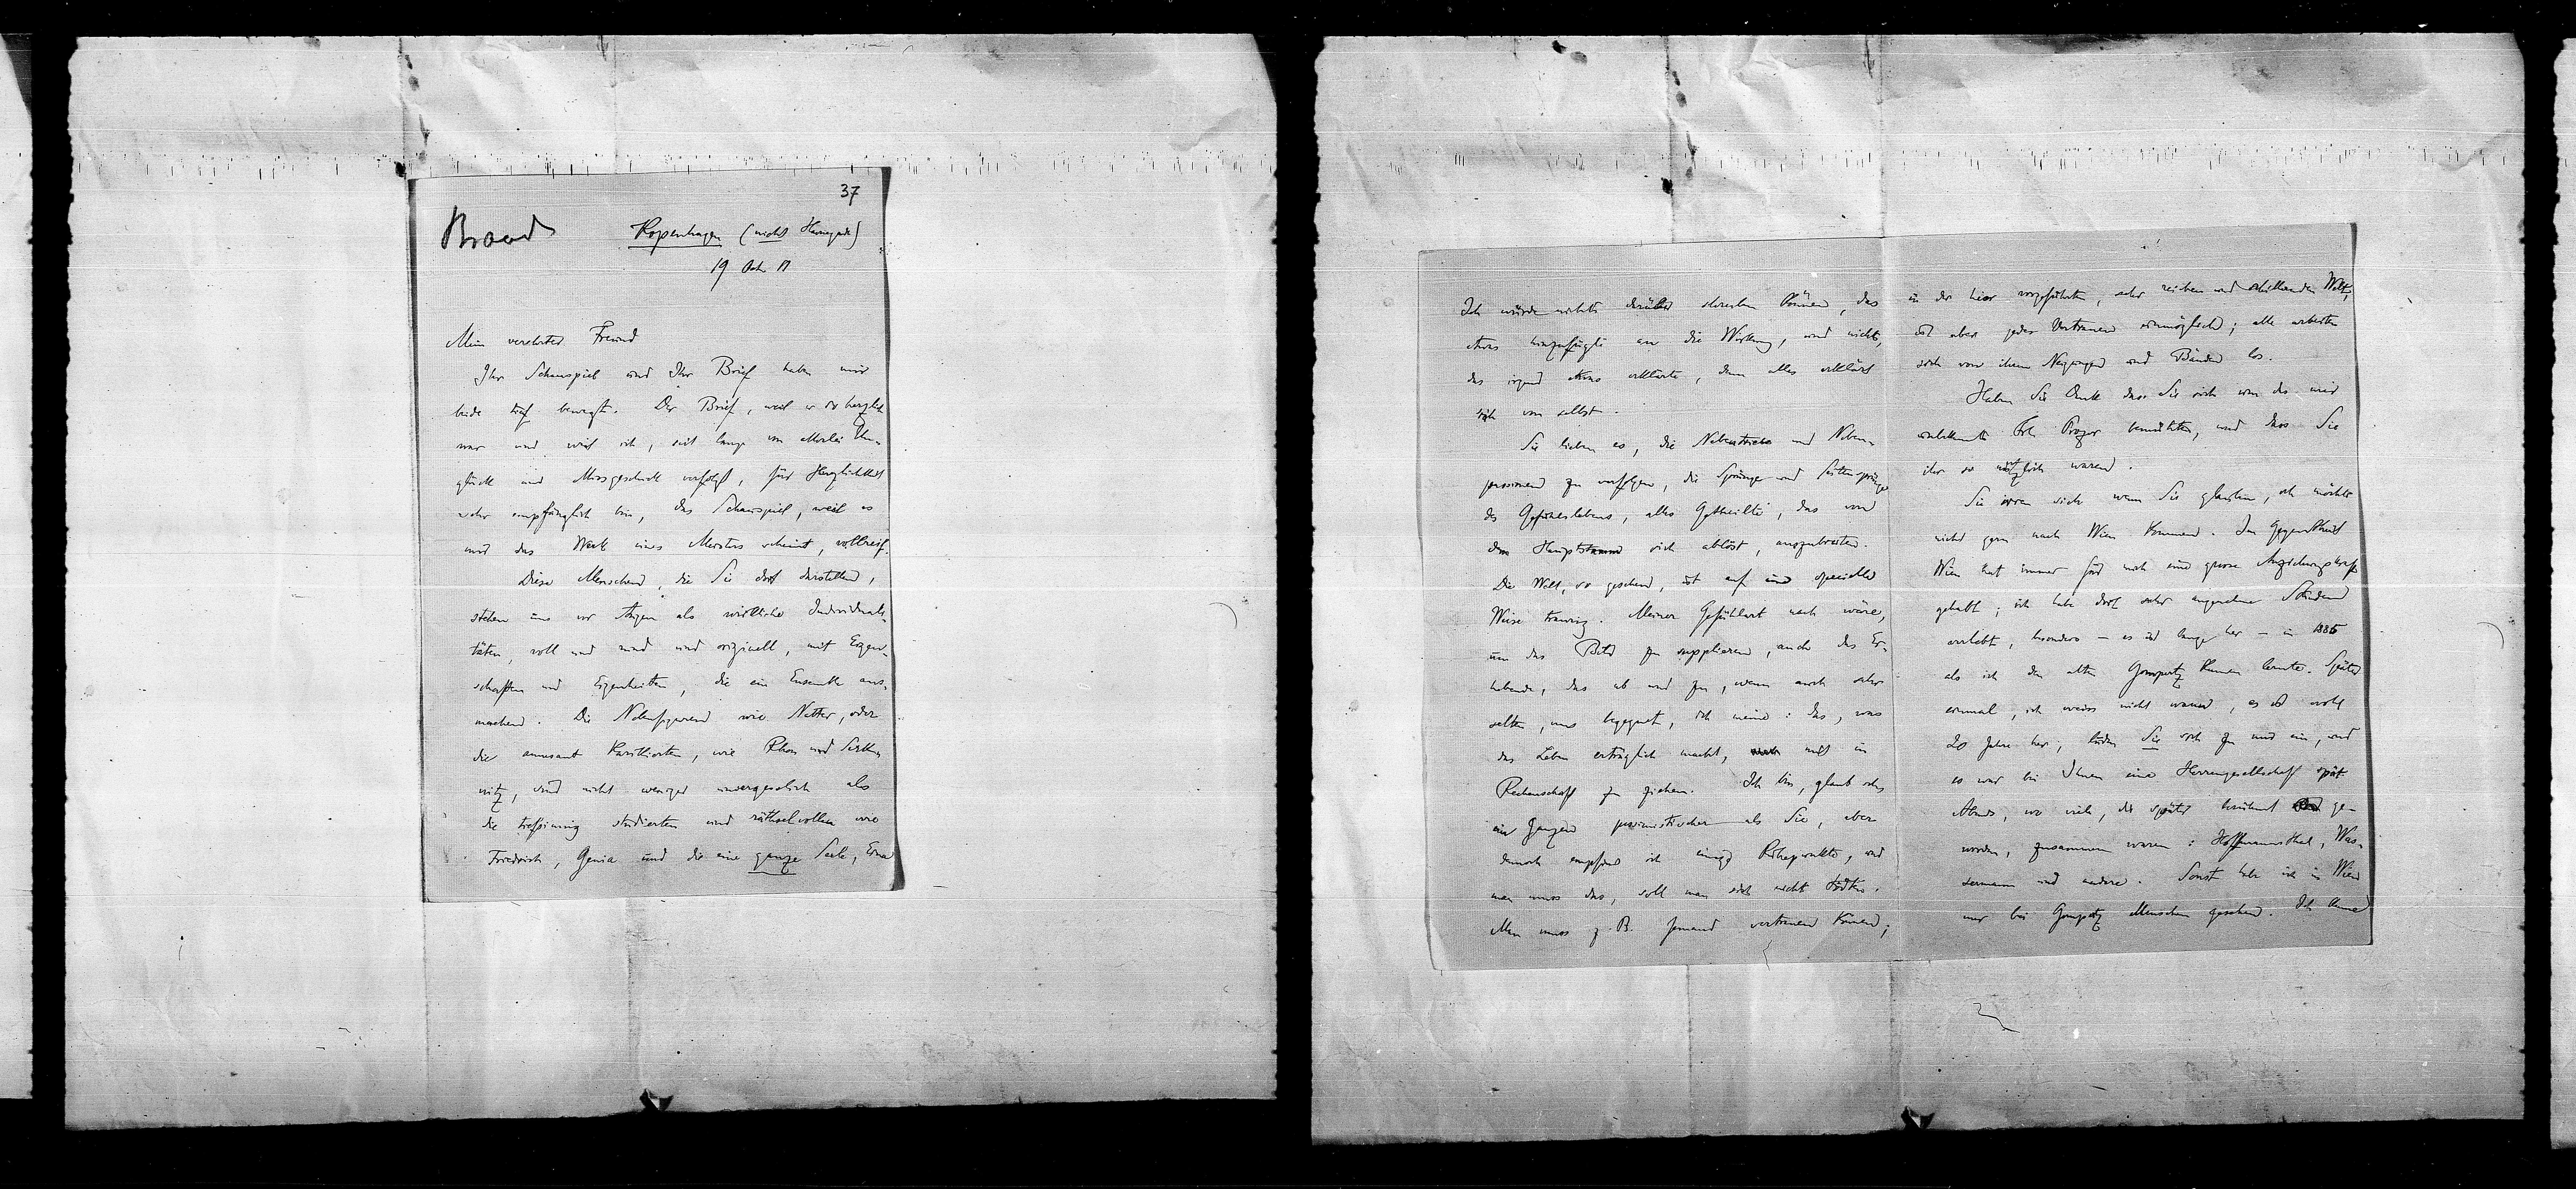 37
Brandes
Kopenhagen (nicht Havnegade)
19 Oct 11
Mein verehrter Freund
Ihr Schauspiel und Ihr Brief haben mich
beide tief bewegt. Der Brief, weil er so herzlich
war und weil ich, seit lange von allerlei Un-
glück und Missgeschick verfolgt, für Herzlichkeit
sehr empfänglich bin, das Schauspiel, weil es
mir das Werk eines Meisters scheint, vollreif.
Diese Menschen, die Sie dort darstellen,
stehen uns vor Augen als wirkliche Individuali-
täten, voll und rund und originell, mit Eigen-
schaften und Eigenheiten, die ein Ensemble aus-
machen. Die Nebenfiguren wie Natter, oder
die amusant karikierten, wie Rhon und Serkn
nitz, sind nicht weniger unvergesslich als
die tiefsinnig studierten und räthselvollen wie
Friedrich, Genia und die eine ganze Seele, Erna
Ich würde nichts darüber schreiben können, das
etwas hinzufügte an die Wirkung, und nichts,
das irgend etwas erklärte, denn alles erklärt
sich von selbst.
Sie lieben es, die Nebentriebe und Neben-
personen zu verfolgen, die Sprünge und Seitensprünge
des Gefühlslebens, alles Getheilte, das von
dem Hauptstamm sich ablöst, auszubreiten.
Die Welt, so gesehen, ist auf eine specielle
Weise traurig. Meiner Gefühlsart nach wäre,
um das Bild zu supplieren, auch das Er-
hebende, das ab und zu, wenn auch sehr
selten, uns begegnet, ich meine: das, was
das Leben erträglich macht, mit in
Rechenschaft zu ziehen. Ich bin, glaub ich,
im Ganzen pessimistischer als Sie, aber
dennoch empfinde ich einige Ruhepunkte, und
man muss das, soll man sich nicht tödten.
Man muss z. B. Jemand vertrauen können;
in der hier vorgeführten, sehr reichen und schillernden Welt,
ist aber jedes Vertrauen unmöglich; alle arbeiten
sich von ihren Neigungen und Banden los.
Haben Sie Dank dass Sie sich um die mir
unbekannte Frl Prozor bemühten, und dass Sie
ihr so nützlich waren.
Sie irren sich wenn Sie glauben, ich möchte
nicht gern nach Wien kommen. Im Gegentheil
Wien hat immer für mich eine grosse Anziehungskraft
gehabt; ich habe dort sehr angenehme Stunden
verlebt, besonders – es ist lange her – in 1885
als ich den alten Gomperz kennen lernte. Später
einmal, ich weiss nicht wann, es ist wohl
20 Jahre her, luden Sie mich zu und ein, und
es war bei Ihnen eine Herrengesellschaft spät
Abends, wo viele, die später berühmt ge-
worden, zusammen waren: Hoffmannsthal, Was-
sermann und andere. Sonst habe ich in Wien
nur bei Gomperz Menschen gesehen. Ich kann